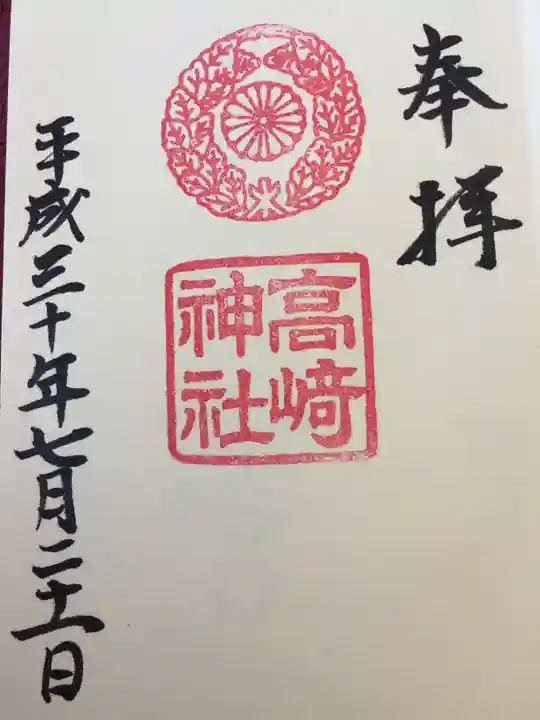 奉拝
高﨑
神社
平成三十年七月二十一日